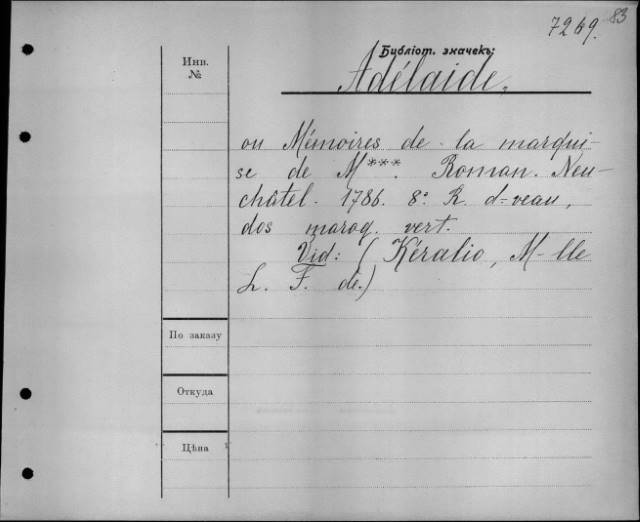 83
7269.
Библіот. значекъ:
Adélaïde,
Инв.
№
ou Mémoires de la marqui-
se de M***. Roman. Neu-
châtel. 1786. 8º. R. d-veau,
dos maroq. vert.
Vid: (Kéralio, M-lle
L. F. de.)
По заказу
Откуда
Цѣна